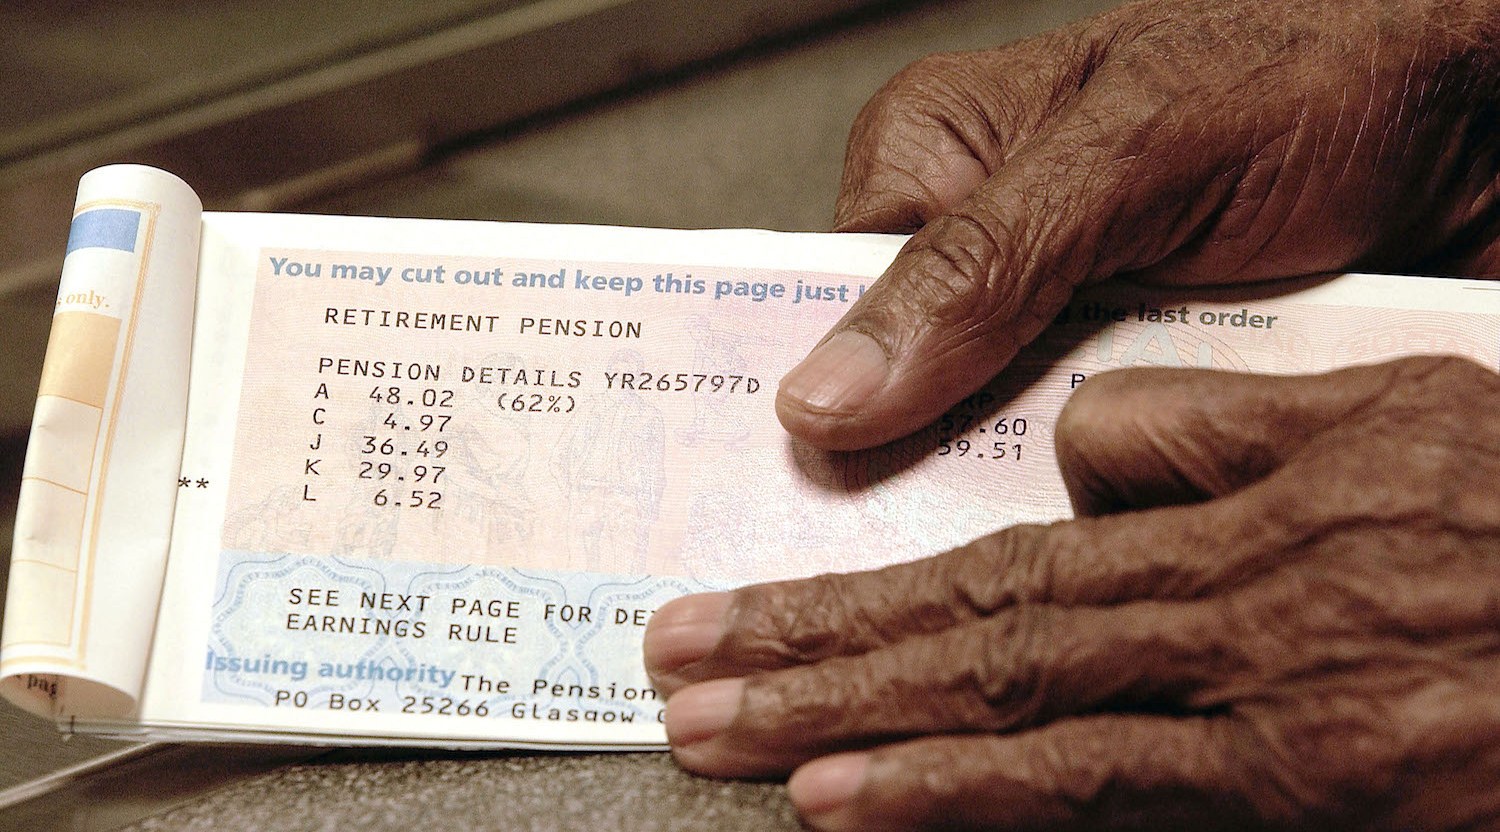 only.
You may cut out and keep this page just
the last order
RETIREMENT PENSION
PENSION DETAILS YR265797D
A 48.02 (62%)
C 4.97
J 36.49
K 29.97
L 6.52
57.60
59.51
**
SEE NEXT PAGE FOR
EARNINGS RULE
Issuing authority The Pension
PO Box 25266 Glasgow